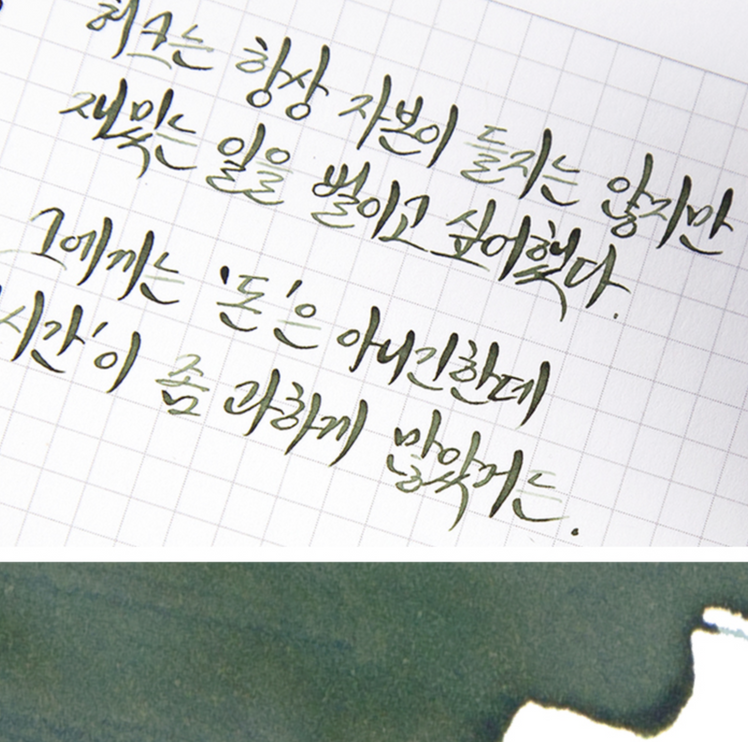 허크는 항상 자본이 들지는 않지만
재밌는 일을 벌이고 싶어했다.
그에게는 '돈'은 아니긴한데
시간'이 좀 과하게 많았거든.